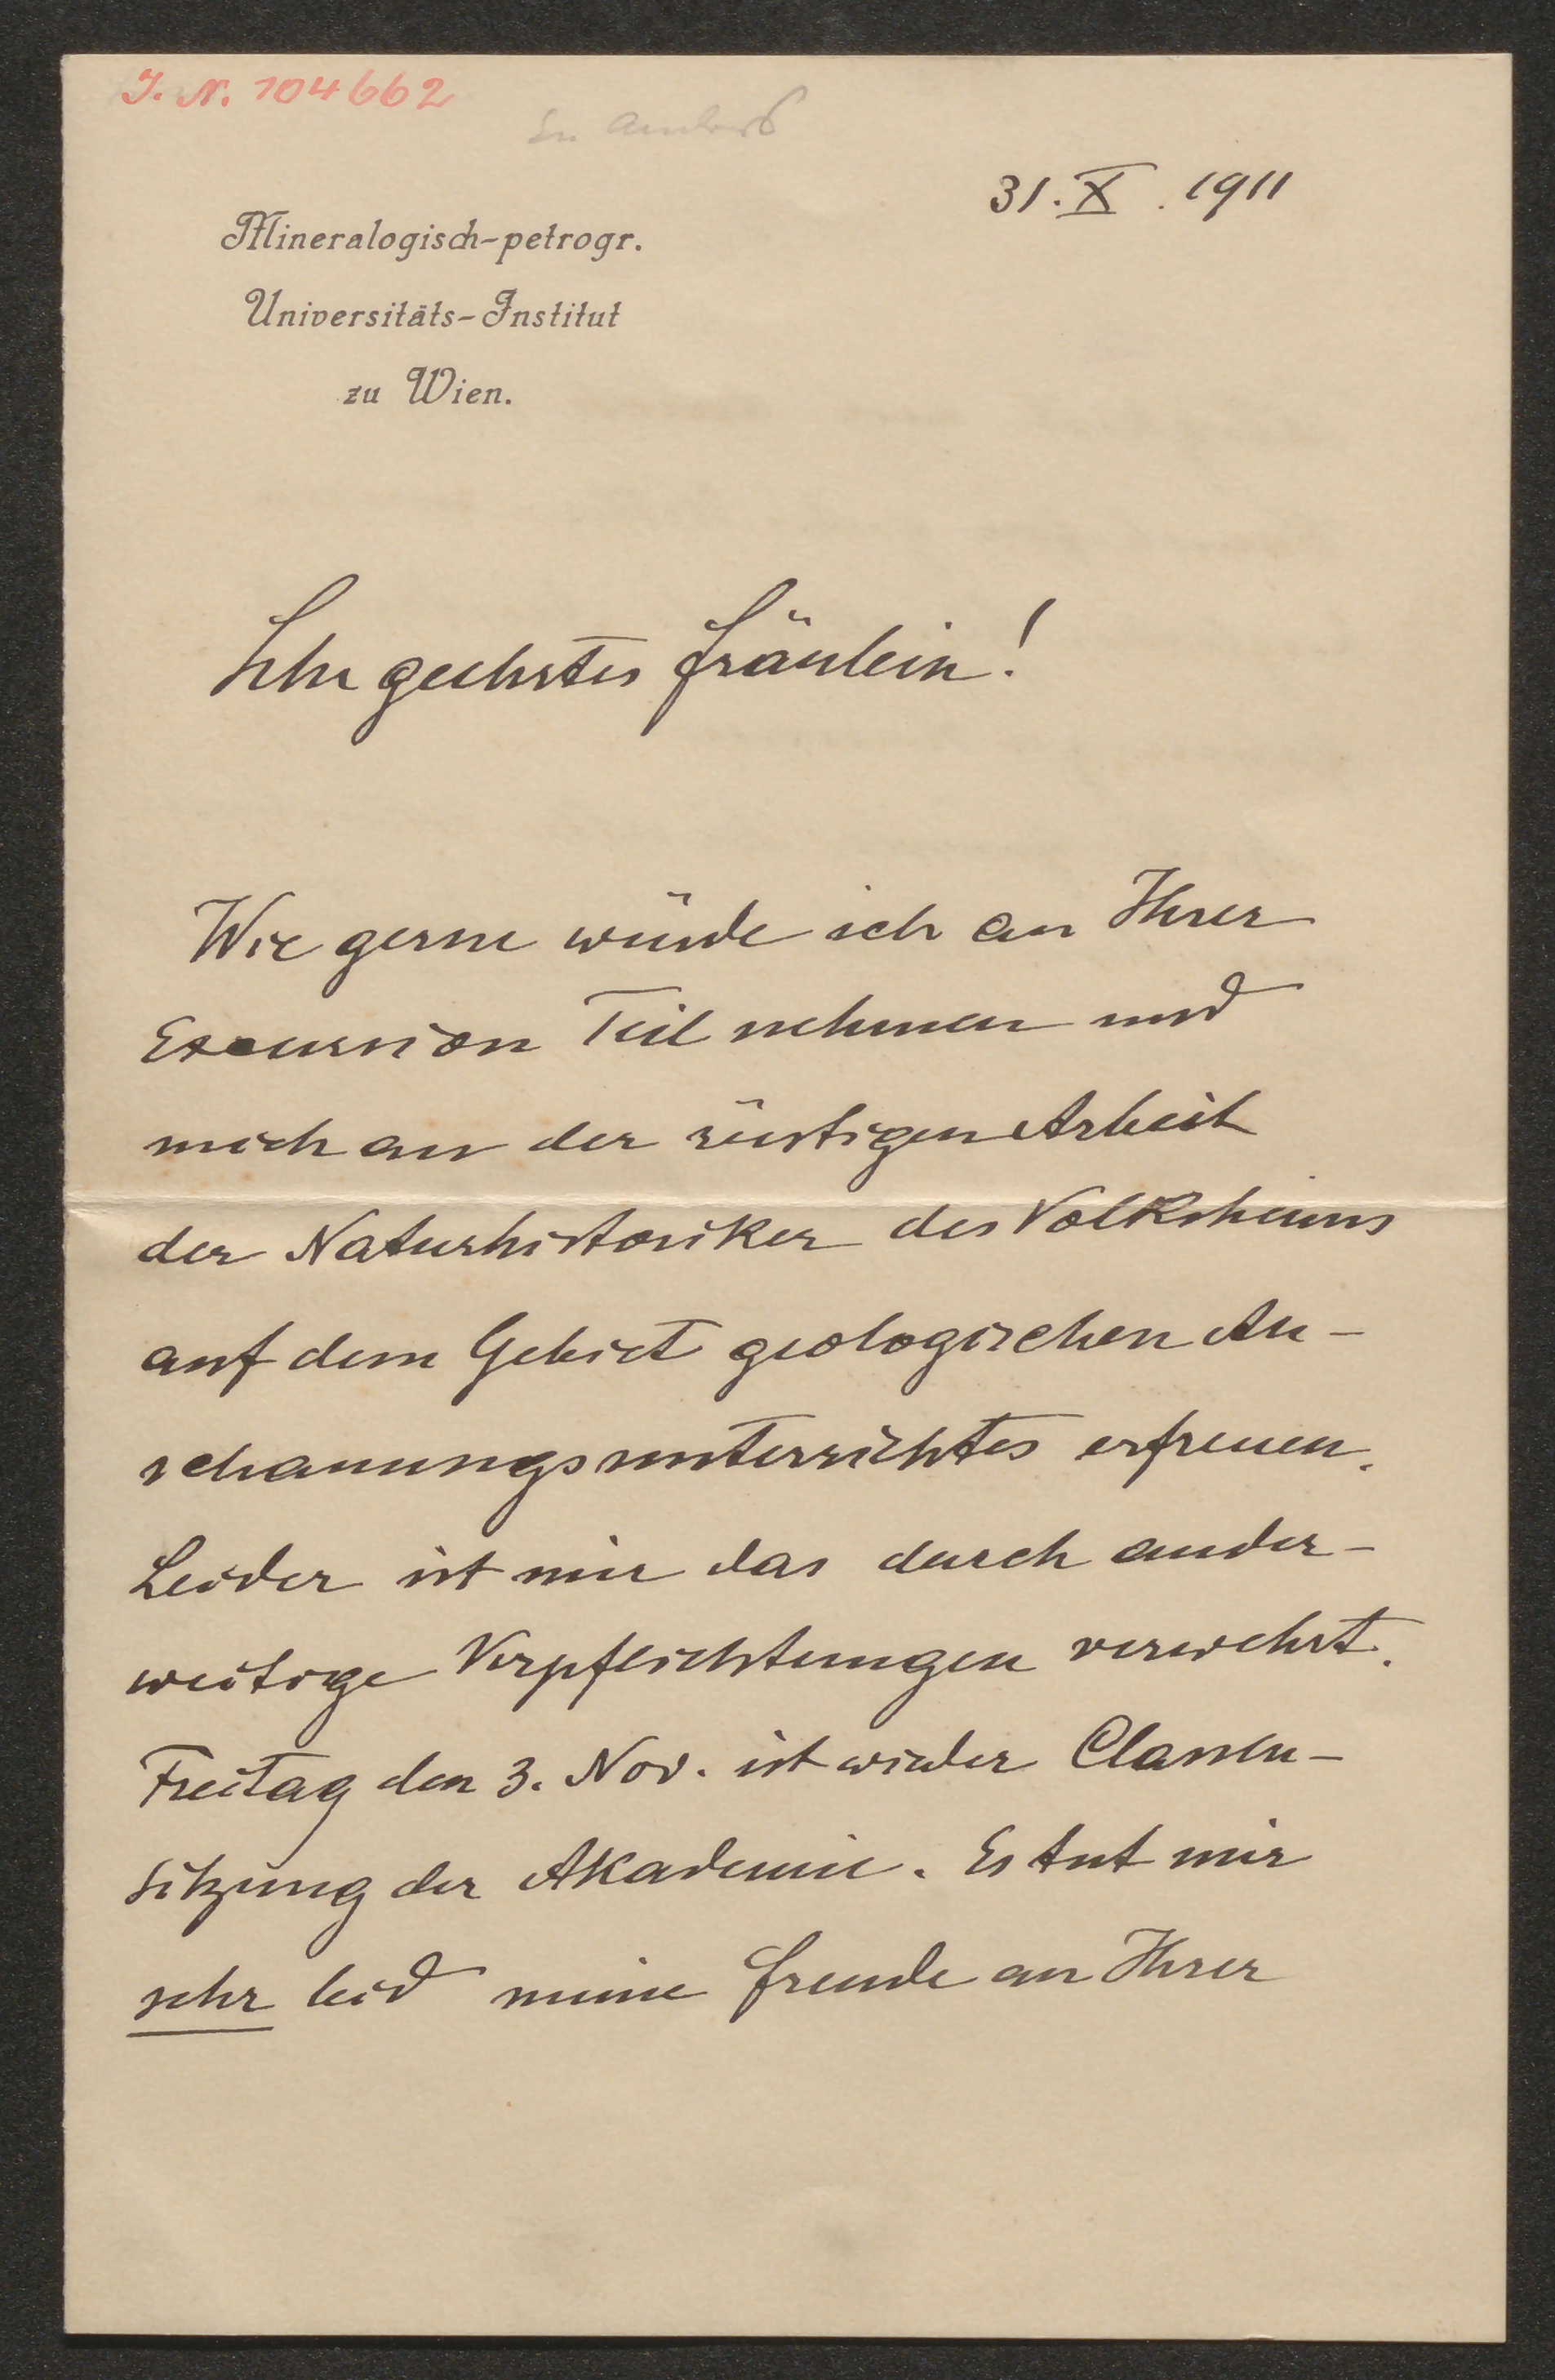 J. N. 104662
31. X. 1911
Mineralogisch-petrogr.
Universitäts-Institut
zu Wien.
Sehr geehrtes Fräulein!
Wie gerne würde ich an Ihrer
Excursion Teil nehmen und
mich an der rüstigen Arbeit
der Naturhistoriker des Volksheims
auf dem Gebiet geologischen An-
schauungsunterrichtes erfreuen.
Leider ist mir das durch ander-
weitige Verpflichtungen verwehrt.
Freitag den 3. Nov. ist wieder Classen-
sitzung der Akademie. Es tut mir
sehr leid meine Freude an Ihrer